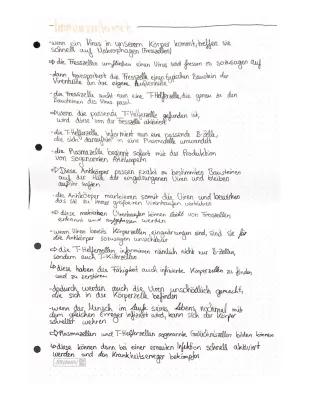 Immunantwort
-wenn ein Virus in unserem Körper kommt, treffen sie
schnell auf Makrophagen (Fresszellen)
⇒ die Fresszellen umfließen einen Virus und fressen es sozusagen auf
-dann transportiert die Fresszelle einen typischen Baustein der
Virenhülle an ihre eigene Außenseite
-die Fresszelle sucht nun eine T-Helferzelle, die genau zu den
Bausteinen des Virus passt
⇒ Wenn die passende T-Helferzelle gefunden ist,
wird diese von der Fresszelle aktiviert
-die T-Helferzelle informiert nun eine passende B-Zelle,
die sich daraufhin in eine Plasmazelle umwandelt
-die Plasmazelle beginnt sofort mit der Produktion
von sogenannten Antikörpern
⇒ Diese Antikörper passen exakt zu bestimmten Bausteinen
auf der Hülle der eingedrungenen Viren und bleiben
daran haften
-die Antikörper markieren somit die Viren und bewirken
das sie zu immer größeren Virenhaufen verklumpen
⇒ diese markierten Virenhaufen können leicht von Fresszellen
erkannt und aufgefressen werden
-wenn Viren bereits Körperzellen eingedrungen sind, sind sie für
die Antikörper sozusagen unsichtbar
⇒ die T-Helferzellen informieren nämlich nicht nur B-Zellen,
sondern auch T-Killerzellen
↳ diese haben die Fähigkeit auch infizierte Körperzellen zu finden
und zu zerstören
-dadurch werden auch die Viren unschädlich gemacht,
die sich in die Körperzelle befinden
-wenn der Mensch im Laufe seines Lebens nochmal mit
dem gleichen Erreger infiziert wird, kann sich der Körper
schneller wehren
⇒ Plasmazellen und T-Helferzellen sogenannte Gedächtniszellen bilden können
↳ diese können dann bei einer erneuten Infektion schnell aktiviert
werden und den Krankheitserreger bekämpfen